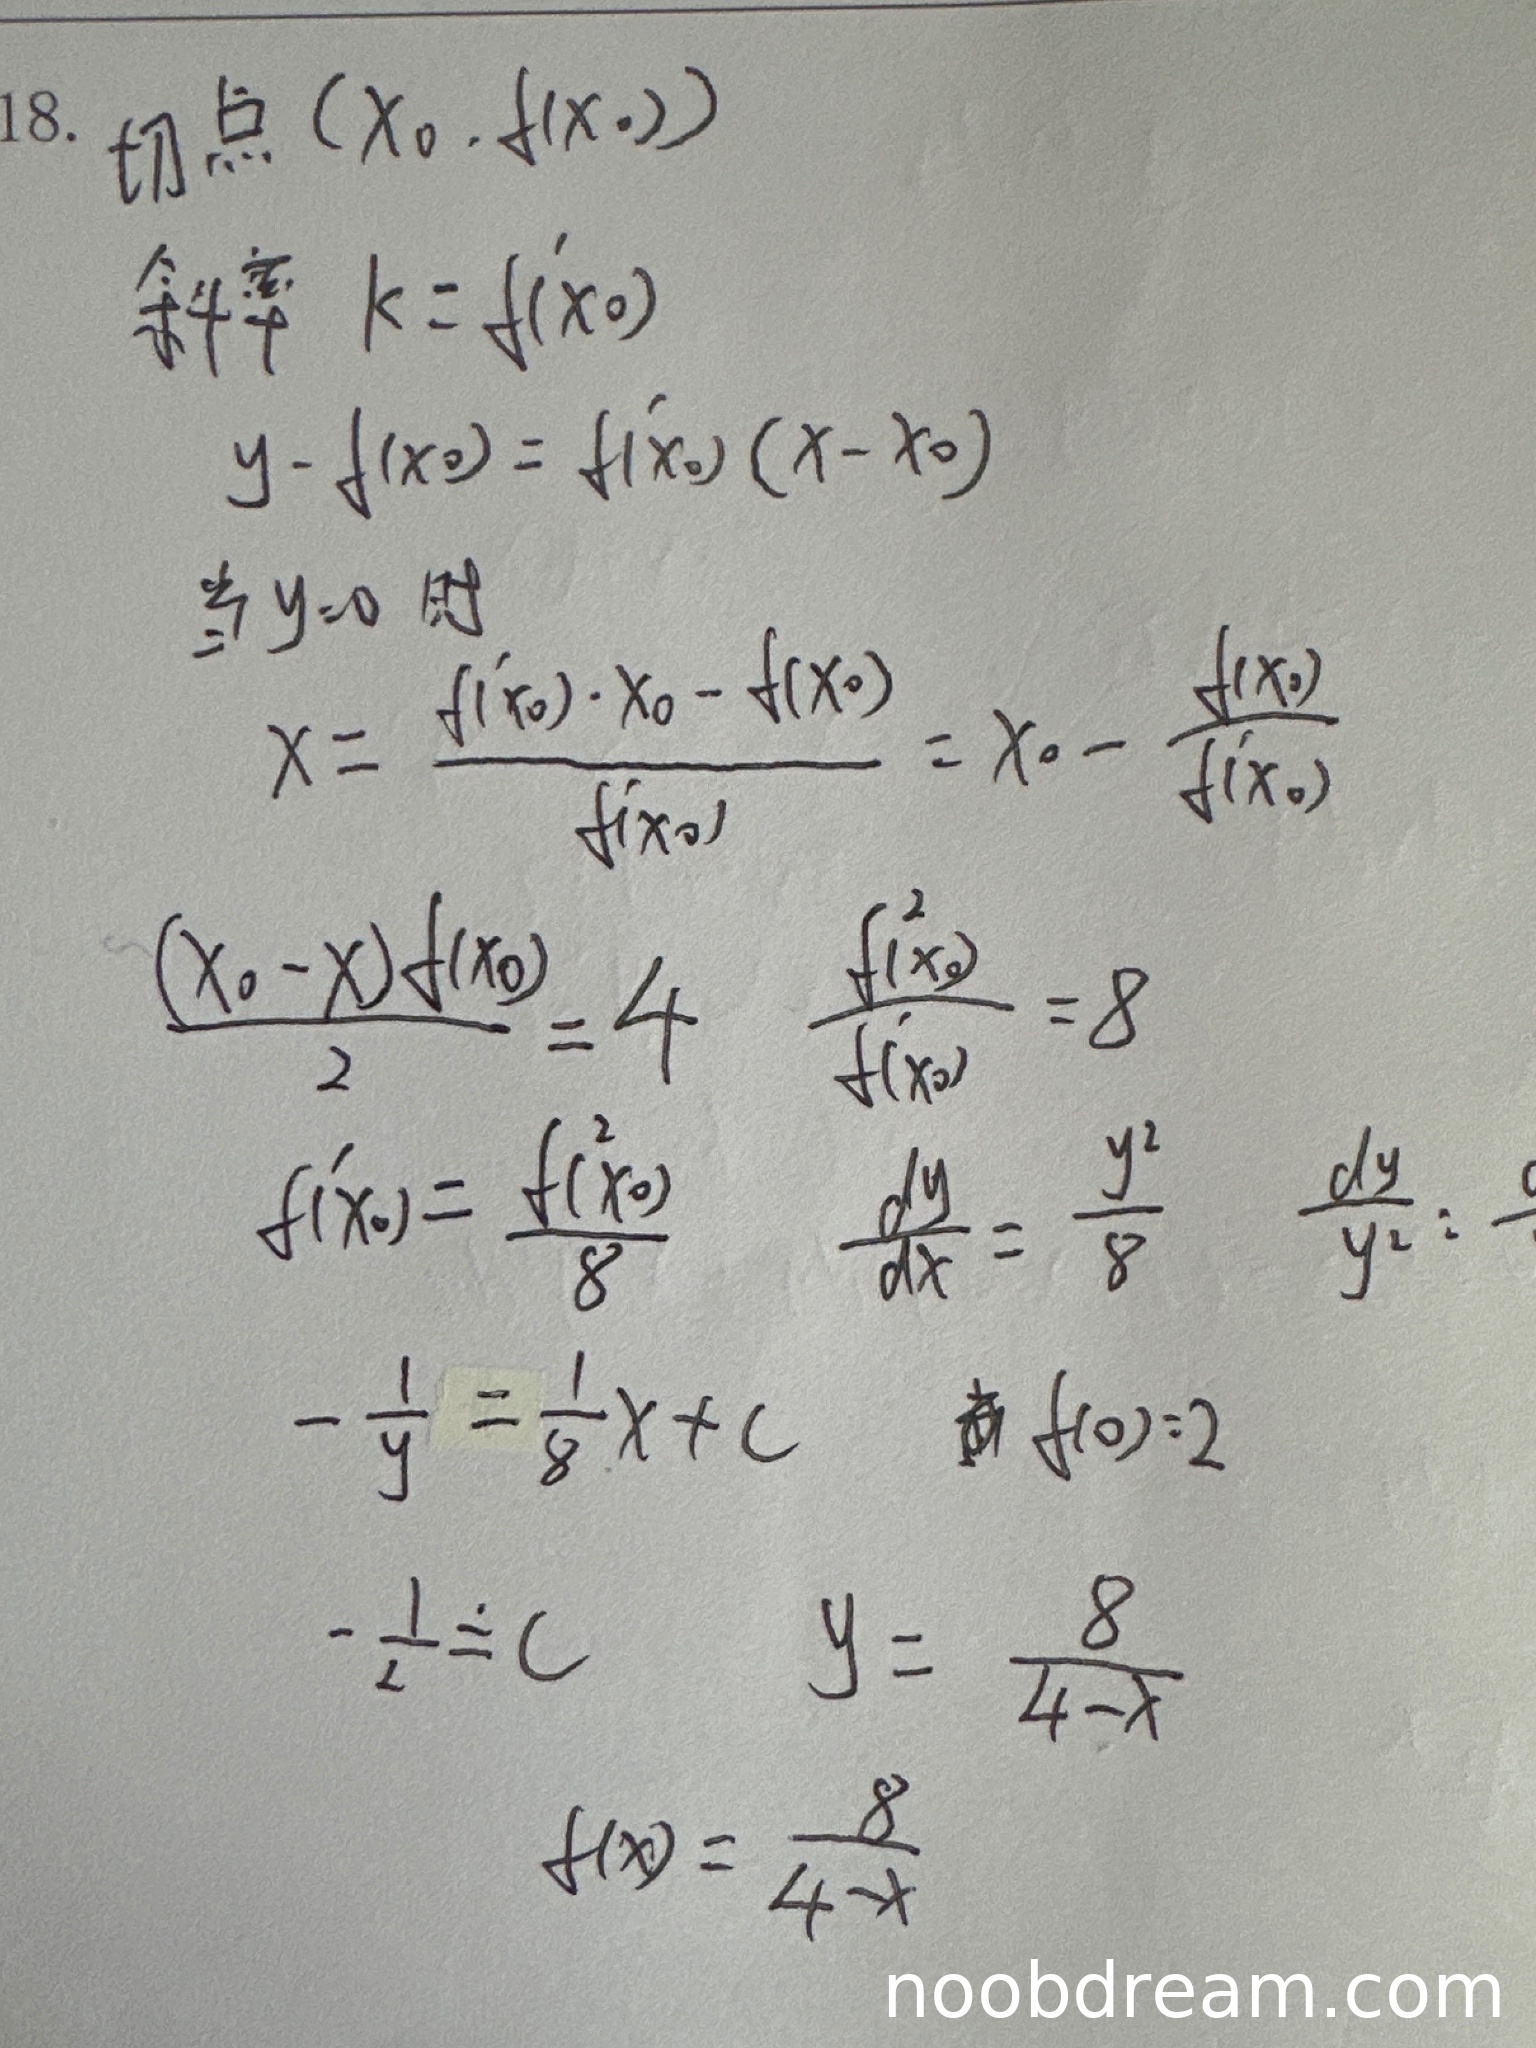 18. 切点 (x₀, f(x₀))
斜率 k = f'(x₀)
y - f(x₀) = f'(x₀) (x - x₀)
当 y=0 时
x = \frac{f'(x₀)·x₀ - f(x₀)}{f'(x₀)} = x₀ - \frac{f(x₀)}{f'(x₀)}
\frac{(x₀ - x) f(x₀)}{2} = 4  \frac{f²(x₀)}{f'(x₀)} = 8
f'(x₀) = \frac{f²(x₀)}{8}  \frac{dy}{dx} = \frac{y²}{8}  \frac{dy}{y²} =
-\frac{1}{y} = \frac{1}{8}x + c  f(0)=2
-\frac{1}{2} = c  y = \frac{8}{4-x}
f(x) = \frac{8}{4-x}
noobdream.com